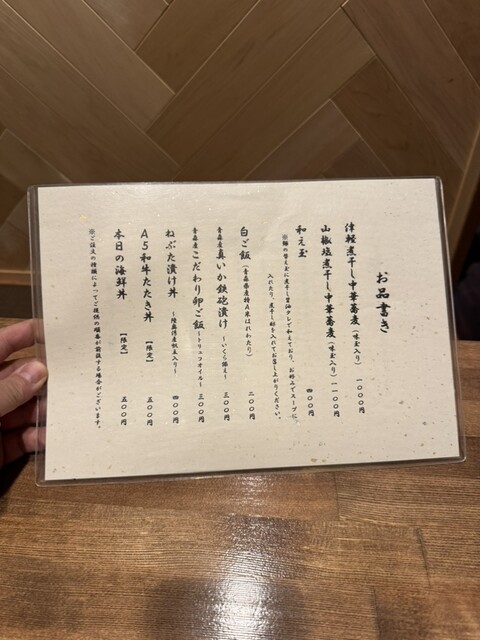 お品書き
津軽煮干し中華蕎麦（味玉入り）一〇〇〇円
山椒塩煮干し中華蕎麦（味玉入り）一一〇〇円
和え玉 四〇〇円
※麺の替え玉に煮干し醤油タレで和えており、お好みでスープに
入れたり、煮干し酢を入れてお召し上がりください。
白ご飯（青森県産特A米はれわたり）二〇〇円
青森産真いか鉄砲漬け～いくら添え～ 三〇〇円
青森産こだわり卵ご飯～トリュフオイル～ 三〇〇円
ねぶた漬け丼～陸奥湾産帆立入り～ 四〇〇円
A5和牛たたき丼【限定】五〇〇円
本日の海鮮丼【限定】五〇〇円
※ご注文の種類によってご提供の順番が前後する場合がございます。